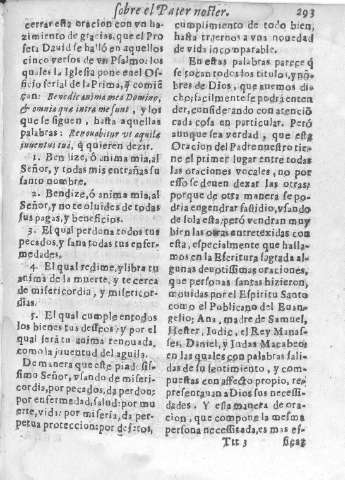 sobre el Pater noster. 293
cerrar esta oracion con vn ha-
zimiento de gracias, que el Pro
feta Dauid se halló en aquellos
cinco versos de vn Psalmo: los
quales la Iglesia pone en el Of-
ficio ferial de la Prima, q̃ comiẽ
çan: Benedic anima mea Domino,
& omnia que intra me sunt, y los
que se siguen, hasta aquellas
palabras: Renouabitur vt aquila
iuuentus tua, q̃ quieren dezir.
1. Bendize, ò anima mia, al
Señor, y todas mis entrañas su
santo nombre.
2. Bendize, ò anima mia, al
Señor, y no te oluides de todas
sus pagas, y beneficios.
3. El qual perdona todos tus
pecados, y sana todas tus enfer-
medades.
4. El qual redime, y libra tu
anima de la muerte, y te cerca
de misericordia, y misericor-
dias.
5. El qual cumple en todos
los bienes tus desseos: y por el
qual serà tu anima renouada,
como la juuentud del aguila.
De manera que este piadosis-
simo Señor, vsando de miseri-
cordia, por pecados, da perdon:
por enfermedad, salud: por mu
erte, vida: por miseria, da per-
petua proteccion: por defetos,
cumplimiento de todo bien,
hasta traernos a vna nouedad
de vida incomparable.
En estas palabras parece q̃
se tocan todos los titulos, y nõ-
bres de Dios, que auemos di-
cho: facilmente se podrà enten-
der, considerando con atenciõ
cada cosa en particular. Però
aunque sea verdad, que esta
Oracion del Padre nuestro tie-
ne el primer lugar entre todas
las oraciones vocales, no por
esso se deuen dexar las otras;
porque de otra manera se po-
dria engendrar fastidio, vsando
de sola esta; però vendran muy
bien las otras entretexidas con
esta, especialmente que halla-
mos en la Escritura sagrada al-
gunas deuotissimas oraciones,
que personas santas hizieron,
mouidas por el Espiritu Santo
como el Publicano del Euan-
gelio; Ana, madre de Samuel,
Hester, Iudic, el Rey Manas-
ses, Daniel, y Iudas Macabeo
en las quales con palabras sali-
das de su sentimiento, y com-
puestas con affecto propio, re-
presentauan a Dios sus necessi-
dades. Y esta manera de ora-
cion, que compone la mesma
persona necessitada, es mas ef-
Ttt 3 ficaz